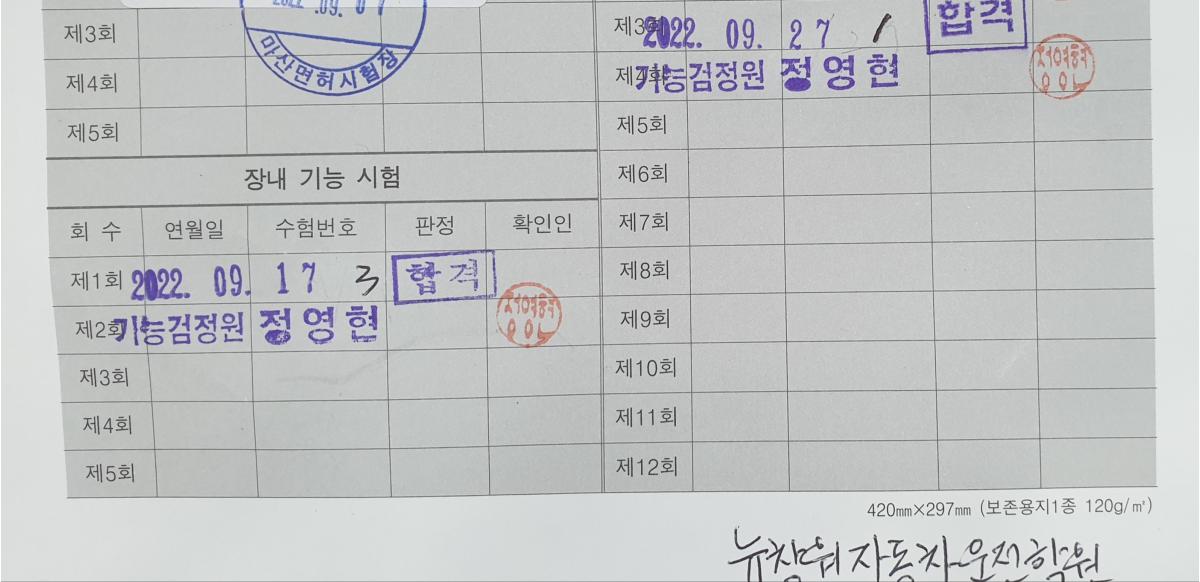 2022 .09. 07
마산면허시험장
제3회
제4회
제5회
장내 기능 시험
회 수 연월일 수험번호 판정 확인인
제1회 2022. 09. 17 3 합격
제2회 기능검정원 정영현
제3회
제4회
제5회
제3회 2022. 09. 27 1 합격
제4회 기능검정원 정영현
제5회
제6회
제7회
제8회
제9회
제10회
제11회
제12회
420㎜×297㎜ (보존용지1종 120g/㎡)
뉴창원자동차운전학원